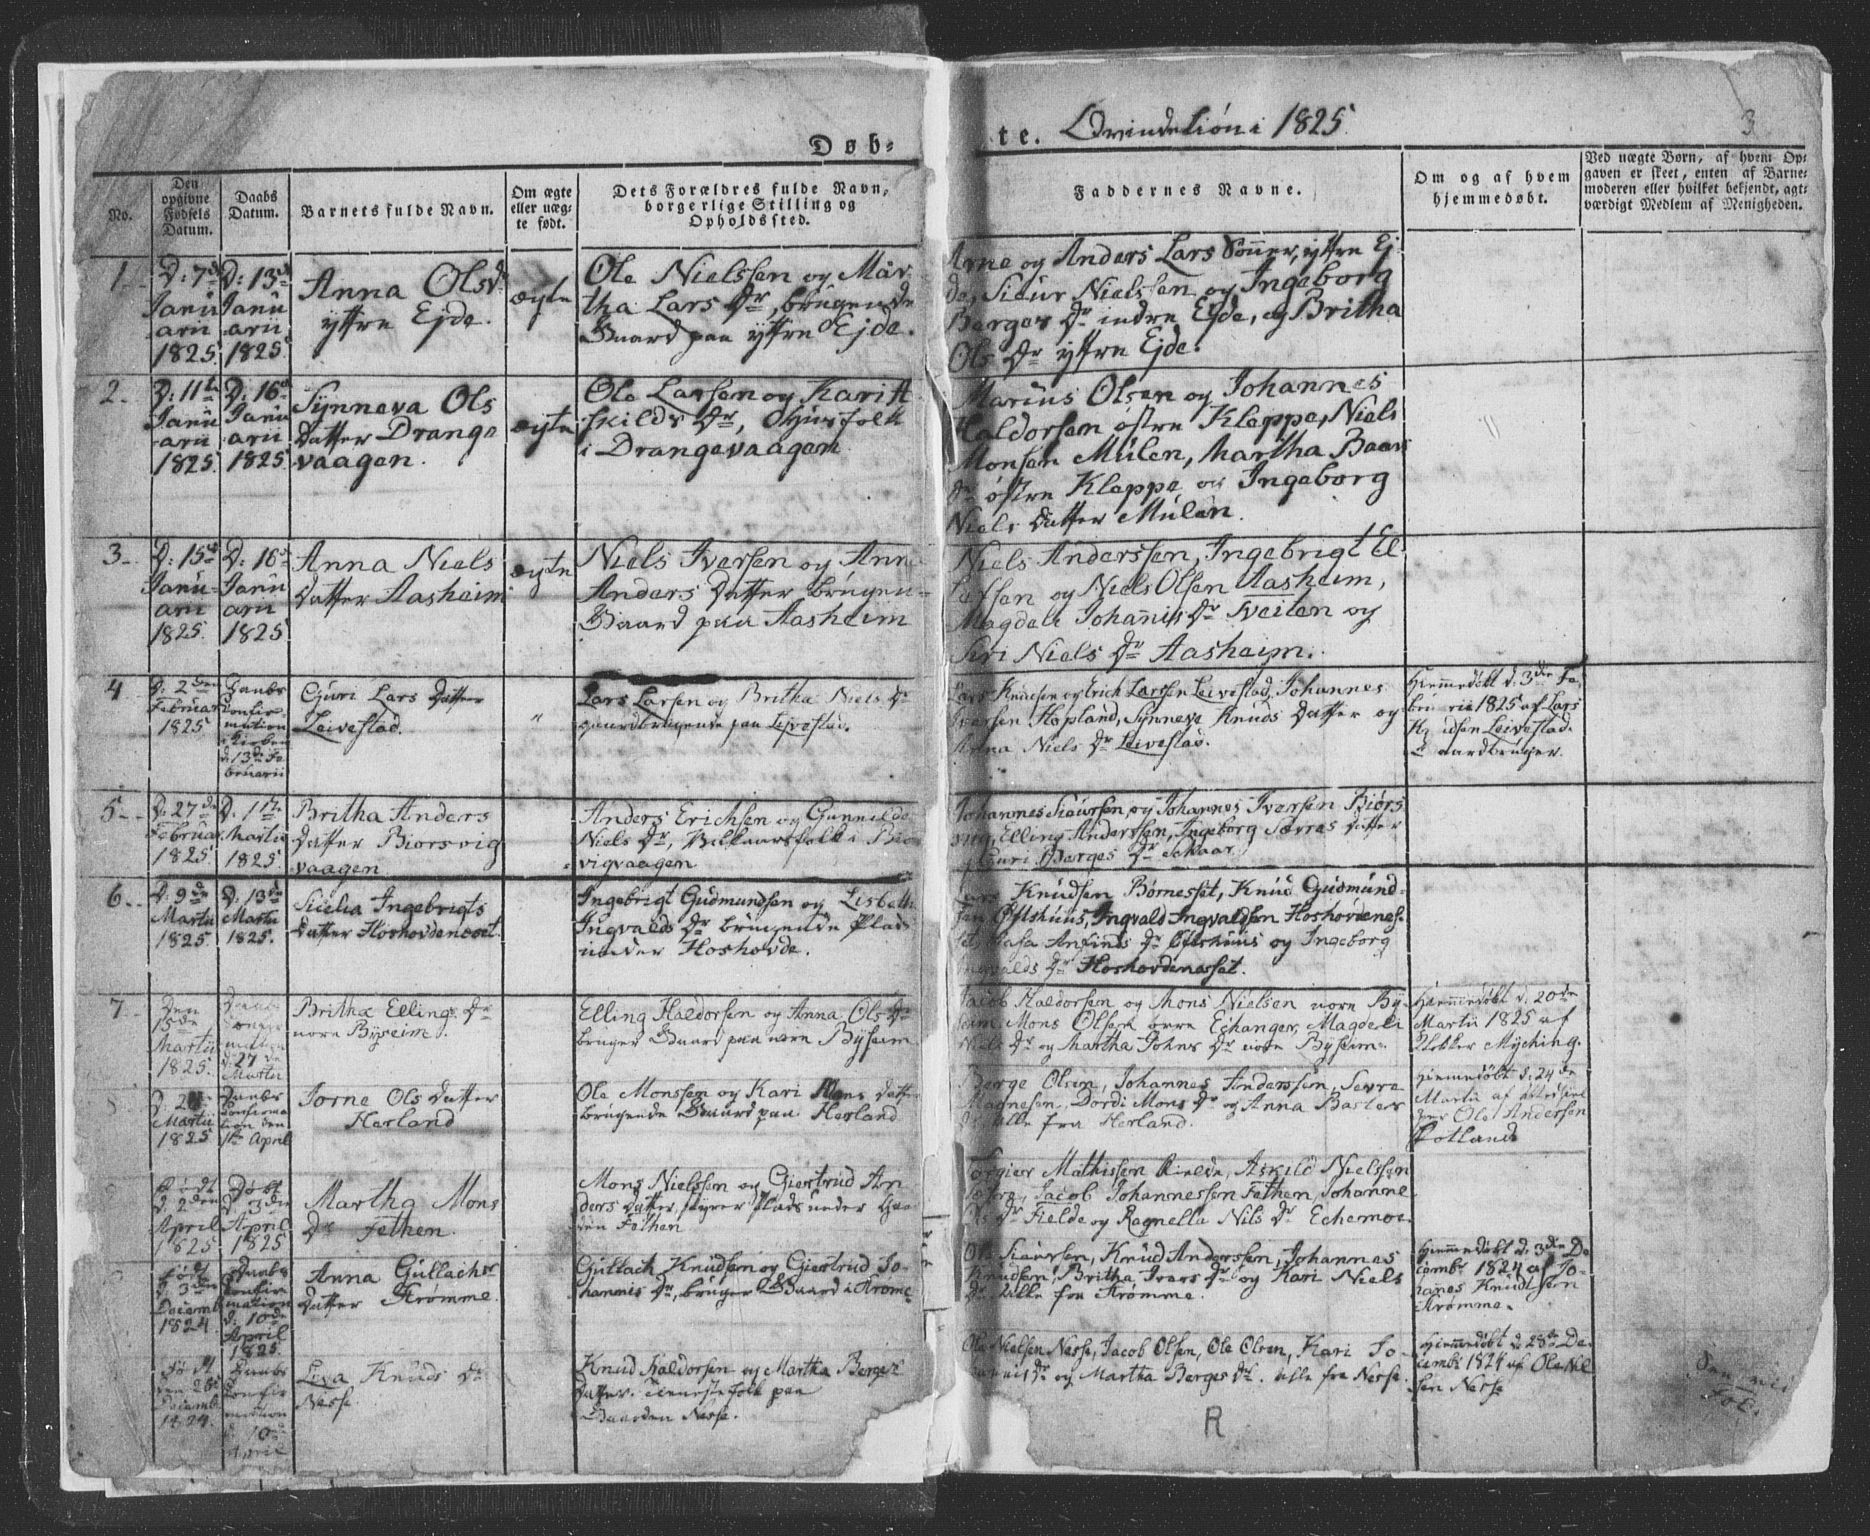 Døb-
te. Qvindekiøn i 1825.
3
No.
Den opgivne Fødsels Datum.
Daabs Datum.
Barnets fulde Navn.
Om ægte eller uægte født.
Dets Forældres fulde Navn, borgerlige Stilling og Opholdssted.
Faddernes Navne.
Om og af hvem hjemmedøbt.
Ved uægte Børn, af hvem Op-
gaven er skeet, enten af Barne-
moderen eller hvilket bekjendt, agt-
værdigt Medlem af Menigheden.
1.
D: 7de
Janu
arii
1825
D: 13de
Janu
arii
1825
Anna Olsd.
yttre Ejde.
ægte
Ole Nielssen og Mar-
tha Lars Dr, brugende
Gaard paa yttre Ejde.
Arne og Anders Lars Sønner, yttre Ej-
de, Siur Nielssen og Ingeborg
Berges Dr indre Ejde, og Britha
Ols Dr yttre Ejde.
2.
D: 11te
Janu
arii
1825
D: 16de
Janu
arii
1825
Synneva Ols
datter Drange
vaagen.
ægte
Ole Larsen og Kari A
skilds Dr, Huusfolk
i Drangevaagen
Marius Olsen og Johannes
Haldorsen østre Kleppe, Niels
Monsen Mulen, Martha Baars
Dr østre Kleppe og Ingeborg
Niels datter Mulen.
3.
D: 15de
Janu-
arii
1825.
D: 16de
Janu
arii
1825
Anna Niels
datter Aasheim
ægte
Niels Iversen og Anna
Anders datter brugen-
Gaard paa Aasheim
Niels Anderssen, Ingebrigt El-
lefsen og Niels Olsen Aasheim,
Magdeli Johannis Dr Sveiten og
Siri Niels Dr Aasheim.
4
D. 2den
Februar
1825
Daabs
Confir
mation
i Kirken
d. 13de Fe
bruarii
Guri Lars datter
Leivestad.
"
Lars Larsen og Britha Niels Dr
gaardbrugende paa Leivestad.
Lars Knudsen og Erich Larssen Leivestad, Johannes
Iversen Hopland, Synneve Knuds datter og
Anna Niels Dr Leivestad.
Hiemmedøbt d. 3die Fe-
bruarii 1825 af Lars
Knudsen Leivestad
Gaardbruger.
5.
D. 27de
Februar
1825
D. 1te
Martii
1825
Britha Anders
datter Biorsvig
vaagen
Anders Erichsen og Gunnilde
Niels Dr, Vilkaarsfolk i Biør
vigvaagen
Johannes Siurssen, og Johannes Iversen Biørs
vig, Elling Anderssen, Ingeborg Sævres datter
Guri Berges Dr Schaar.
6.
D. 9de
Martii
1825
D. 13de
Martii
1825.
Sicelia Ingebrigts
datter Hoshovdenæset.
Ingebrigt Gudmundsen og Lisbeth
Ingvalds Dr brugende Plads
under Hoshovde.
Lars Knudsen Børnesset, Knud Gudmund-
sen Østshuus, Ingvald Ingvaldsen Hoshovdenes-
set, Aasa Anfinds Dr Østshuus og Ingeborg
Ingvalds Dr Hoshovdenesset.
7
Den
15de
Martii
1825.
Daabs
Confir
mation
d. 27de
Martii
Britha Ellings Dr
nore Byseim.
Elling Haldorsen og Anna Ols Dr
bruger Gaard paa nore Byseim
Jacob Haldorsen og Mons Nielsen nore By-
seim, Mons Olsen øvre Echanger, Magdeli
Niels Dr og Martha Johns Dr nore Byseim.
Hiemmedøbt d. 20de
Martii 1825 af
Klokker Myching.
Martii
1825
Daabs
Confirma
tion den
1te April
Jorne Ols datter
Herland
Ole Monssen og Kari Mons datter
brugende Gaard paa Herland
Berge Olsen, Johannes Anderssen, Sevre
Magnesen, Dordi Mons Dr og Anna Baster
Dr alle fra Herland.
Hiemmedøbt d. 24de
Martii af
Ole Andersen
Totland
Født
d. 2den
April
1825
Døbt
d. 3die
April
1825
Martha Mons
Dr Fethen.
Mons Nielssen og Giertrud An
ders datter, styrer Plads under Gaa-
den Fethen
Torgier Mathissen Rielde, Askild Nielssen
Jacob Johannessen Fethen, Johanne
Ols Dr Fielde og Ragnella Nils Dr Echemoe.
Født
d. 3den
Decemb
1824
Daabs
Confir
mation
d. 10de
April
1825.
Anna Gullachs
datter Strømme.
Gullach Knudsen og Giertrud Jo-
hannis Dr, bruger Gaard i Strømme
Ole Siurssen, Knud Anderssen, Johannes
Knudsen, Britha Ivars Dr og Kari Niels
Dr alle fra Strømme.
Hiemmedøbt d. 3die De
cembr 1824 af Jo-
hanes Knudssen
Strømme.
Født
den 28
Decemb
1824.
Daabs
Confir
mation
d. 10de
April
Liva Knuds Dr
Nesse
Knud Haldorsen og Martha Berges
datter. tienestefolk paa
Gaarden Nesse.
Ole Nielsen Nesse, Jacob Olsen, Ole Olsen, Kari Jo-
hannis Dr og Martha Berges Dr. alle fra Nesse
Hiemmedøbt d. 28de De
cembr 1824 af Ole Niel
sen Nesse
R